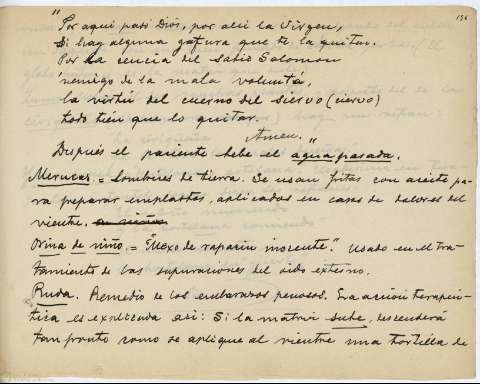 136
"Por aqui pasó Dios, por allí la Virgen,
Si hay alguna gafura que te la quitar.
Por la cencia del sabio Salomon
nemigo de la mala voluntá,
la virtú del cuerno del siervo (ciervo)
todo tien que lo quitar.
Amen."
Después el paciente bebe el agua pasada.
Merucas. = Lombrices de tierra. Se usan fritas con aceite pa-
ra preparar emplastos, aplicados en casos de dolores del
vientre. en niños
Orina de niño = "Mexo de rapacin inocente". Usado en el tra-
tamiento de las supuraciones del oido externo.
Ruda. Remedio de los embarazos penosos. Su acción terapeú-
tica es explicada asi: Si la matriz sube, descenderá
tan pronto como se aplique al vientre una tortilla de